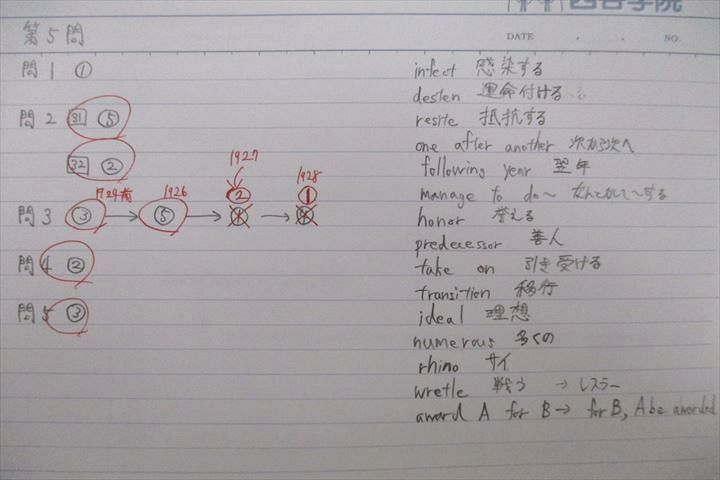 四谷学院
DATE . . NO.
第5問
問1 ①
問2 31 ⑤
32 ②
1924前 1926 1927 1928
② ①
問3 ③ → ⑤ → ④ →
問4 ②
問5 ③
infect 感染する
desten 運命付ける
resite 抵抗する
one after another 次から次へ
following year 翌年
manage to do~ なんとかして~する
honor 誉える
predecessor 善人
take on 引き受ける
transition 移行
ideal 理想
numerous 多くの
rhino サイ
wretle 戦う → レスラー
award A for B → for B, A be awarded